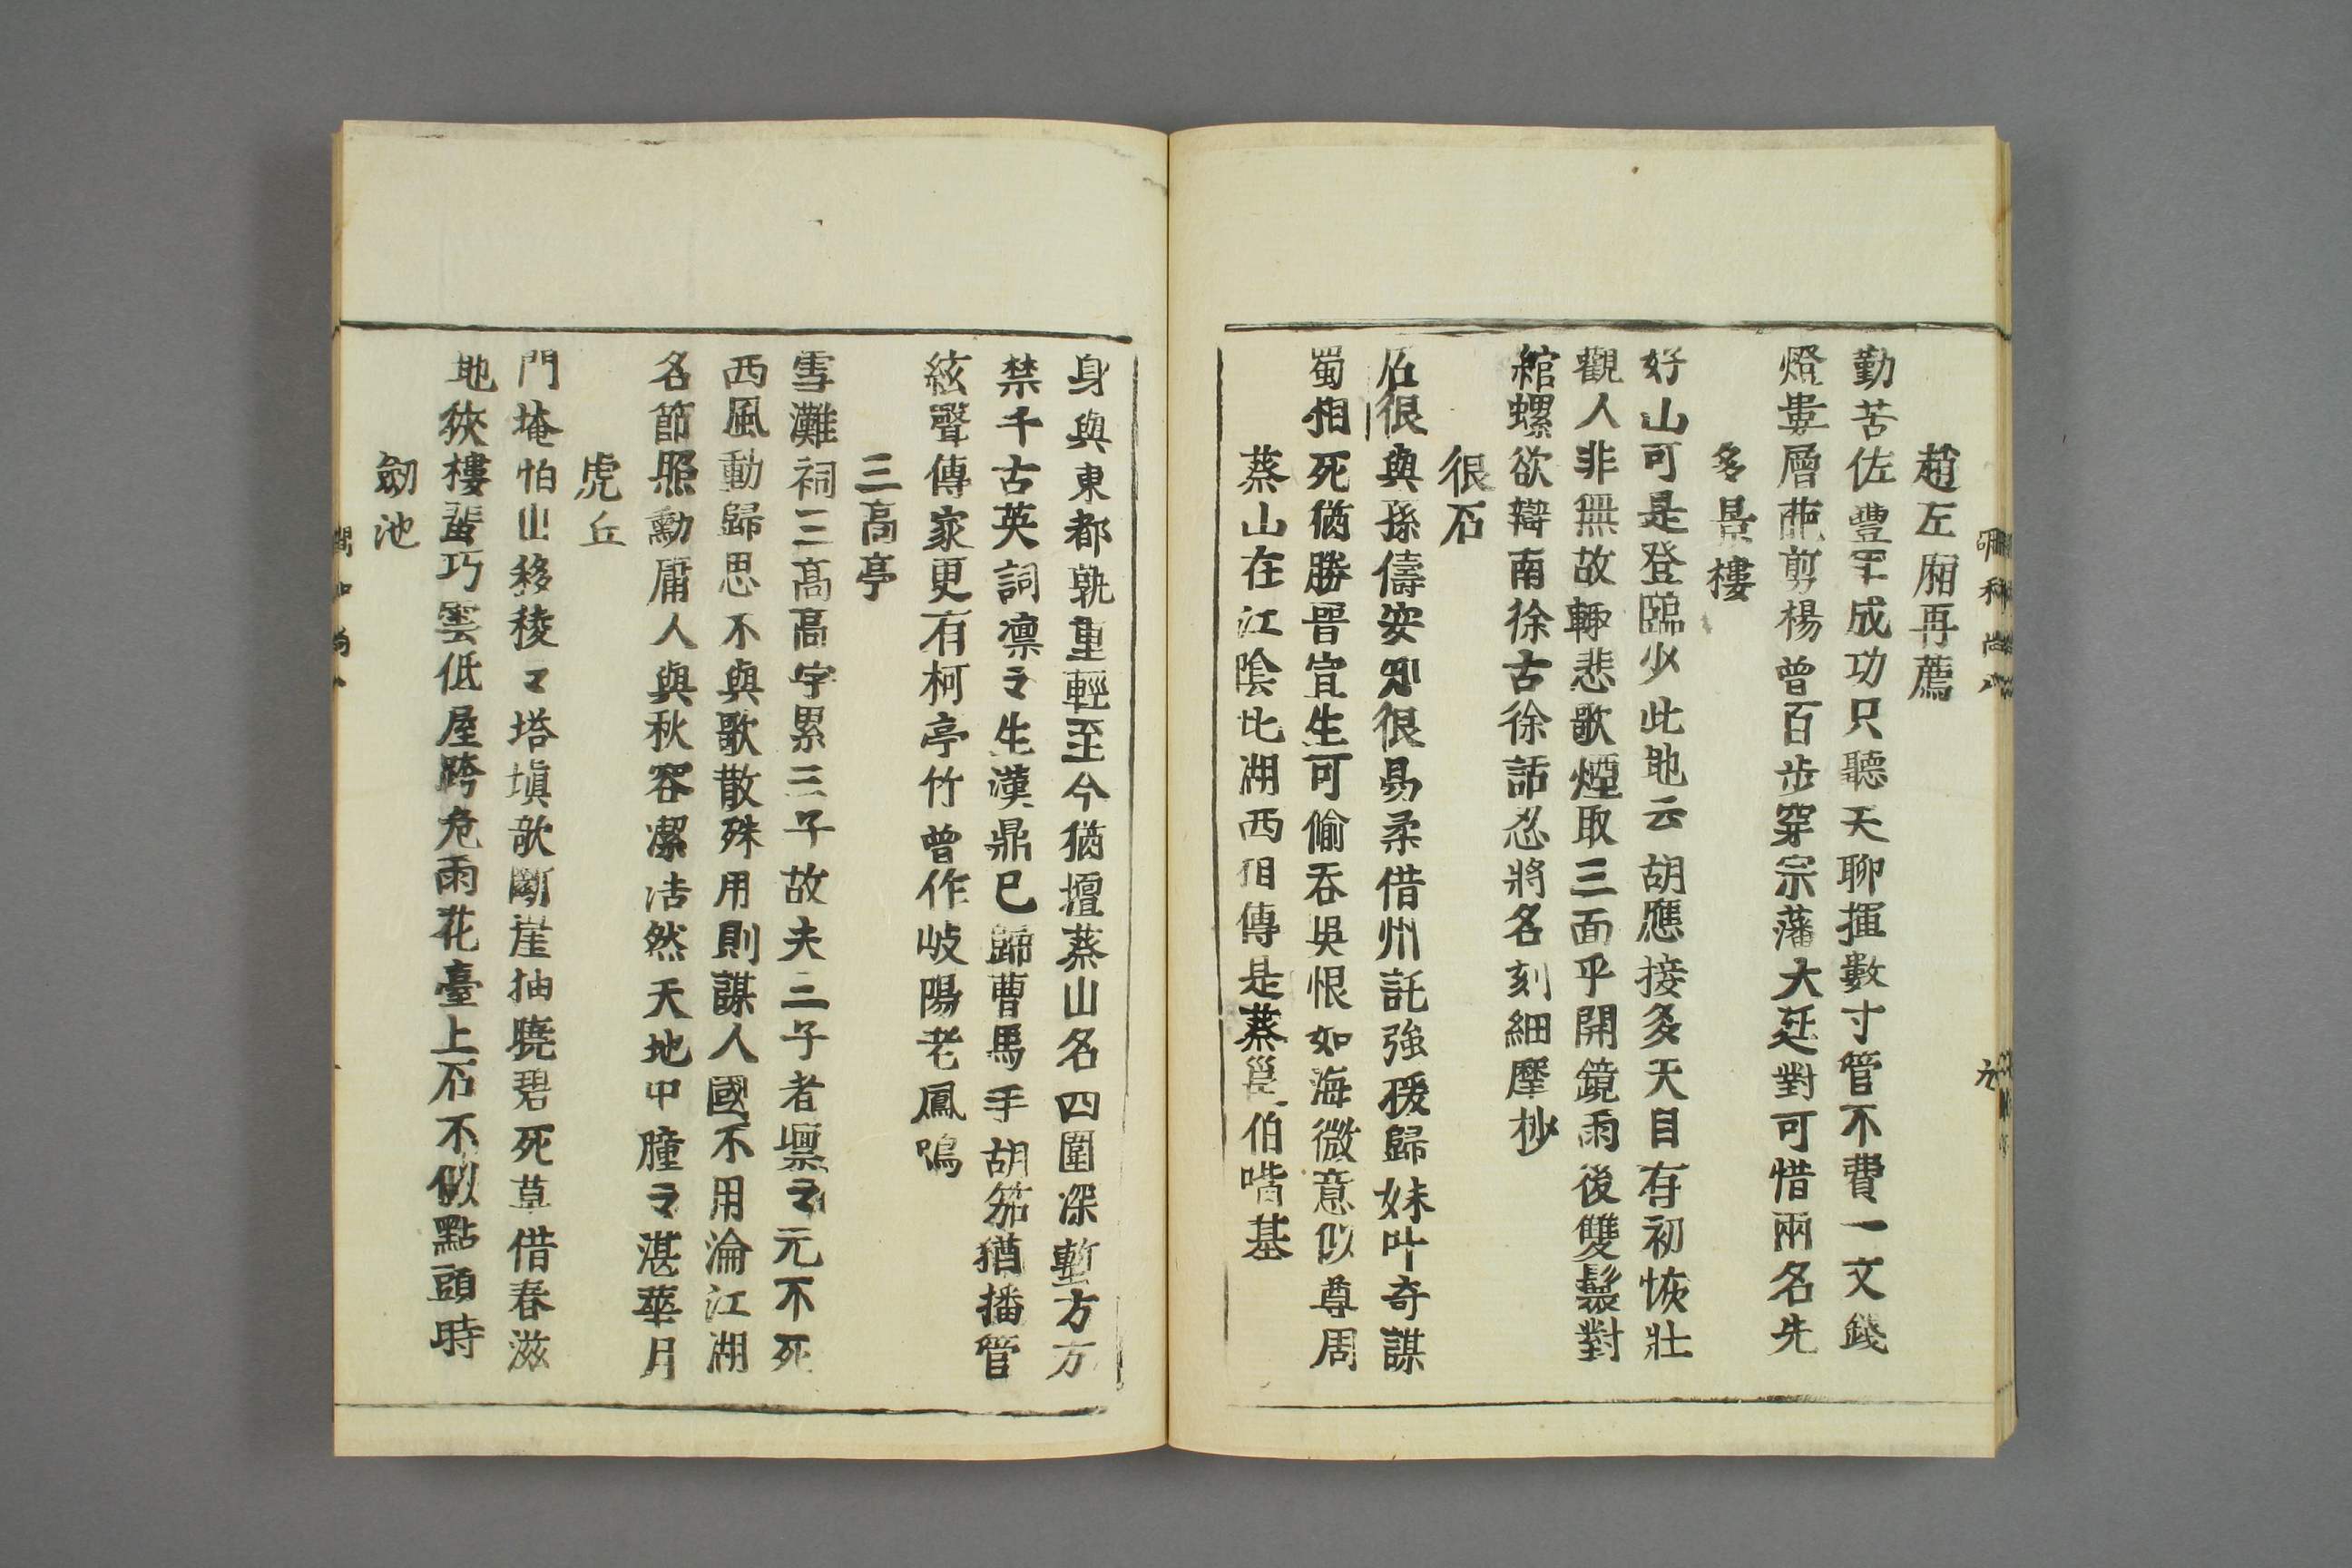 趙左廂再薦
勤苦佐豐芉成功只聽天聊揮數寸管不費一文錢
燈婁層葩剪楊曾百步穿宗藩大廷對可惜兩名先
多景樓
好山可是登臨少此地云胡應接多天目存初恢壯
觀人非無故輙悲歌煙取三面乎開鏡雨後雙鬟對
綰螺欲辯南徐古徐話忍將名刻細摩抄
很石
石很與孫儔安知很易柔借州託強援歸妹叶奇謀
蜀相死猶勝晉宣生可偷吞吳恨如海微意似尊周
蔡山在江陰比湖西相傳是蔡邕伯喈墓
身與東都孰重輕至今猶壇蔡山名四圍深塹方方
禁千古英詞凛々生漢鼎已歸曹馬手胡笳猶播管
絃聲傳家更有柯亭竹曾作岐陽老鳳鳴
三高亭
雪灘祠三高高字累三子故夫三子者凛々元不死
西風動歸思不與歌散殊用則謀人國不用淪江湖
名節照勳庸人與秋容潔浩然天地中朣々湛華月
虎丘
門埯怕山移稜々塔塡欹斷崖抽曉碧死草借春滋
地狹樓蜚巧雲低屋跨危雨花臺上石不似點頭時
劒池